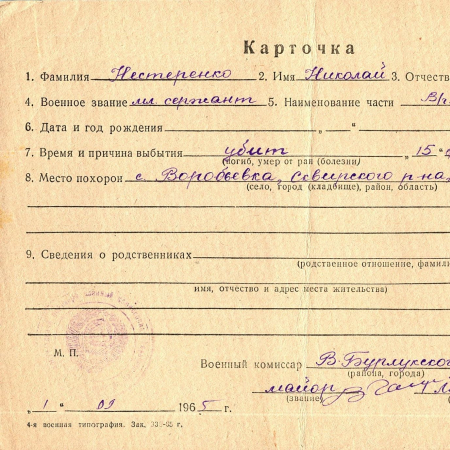 Карточка
1. Фамилия Нестеренко 2. Имя Николай 3. Отчеств
4. Военное звание мл сержант 5. Наименование части В/
6. Дата и год рождения „ “
7. Время и причина выбытия убит „15“
(погиб, умер от ран (болезни)
8. Место похорон с. Воробьевка, Сквирского р-на
(село, город (кладбище), район, область)
9. Сведения о родственниках
(родственное отношение, фамили
имя, отчество и адрес места жительства)
М. П.
Военный комиссар В.Бурлукского
(района, города)
майор
(звание)
„1“ 09 1965 г.
4-я военная типография. Зак.